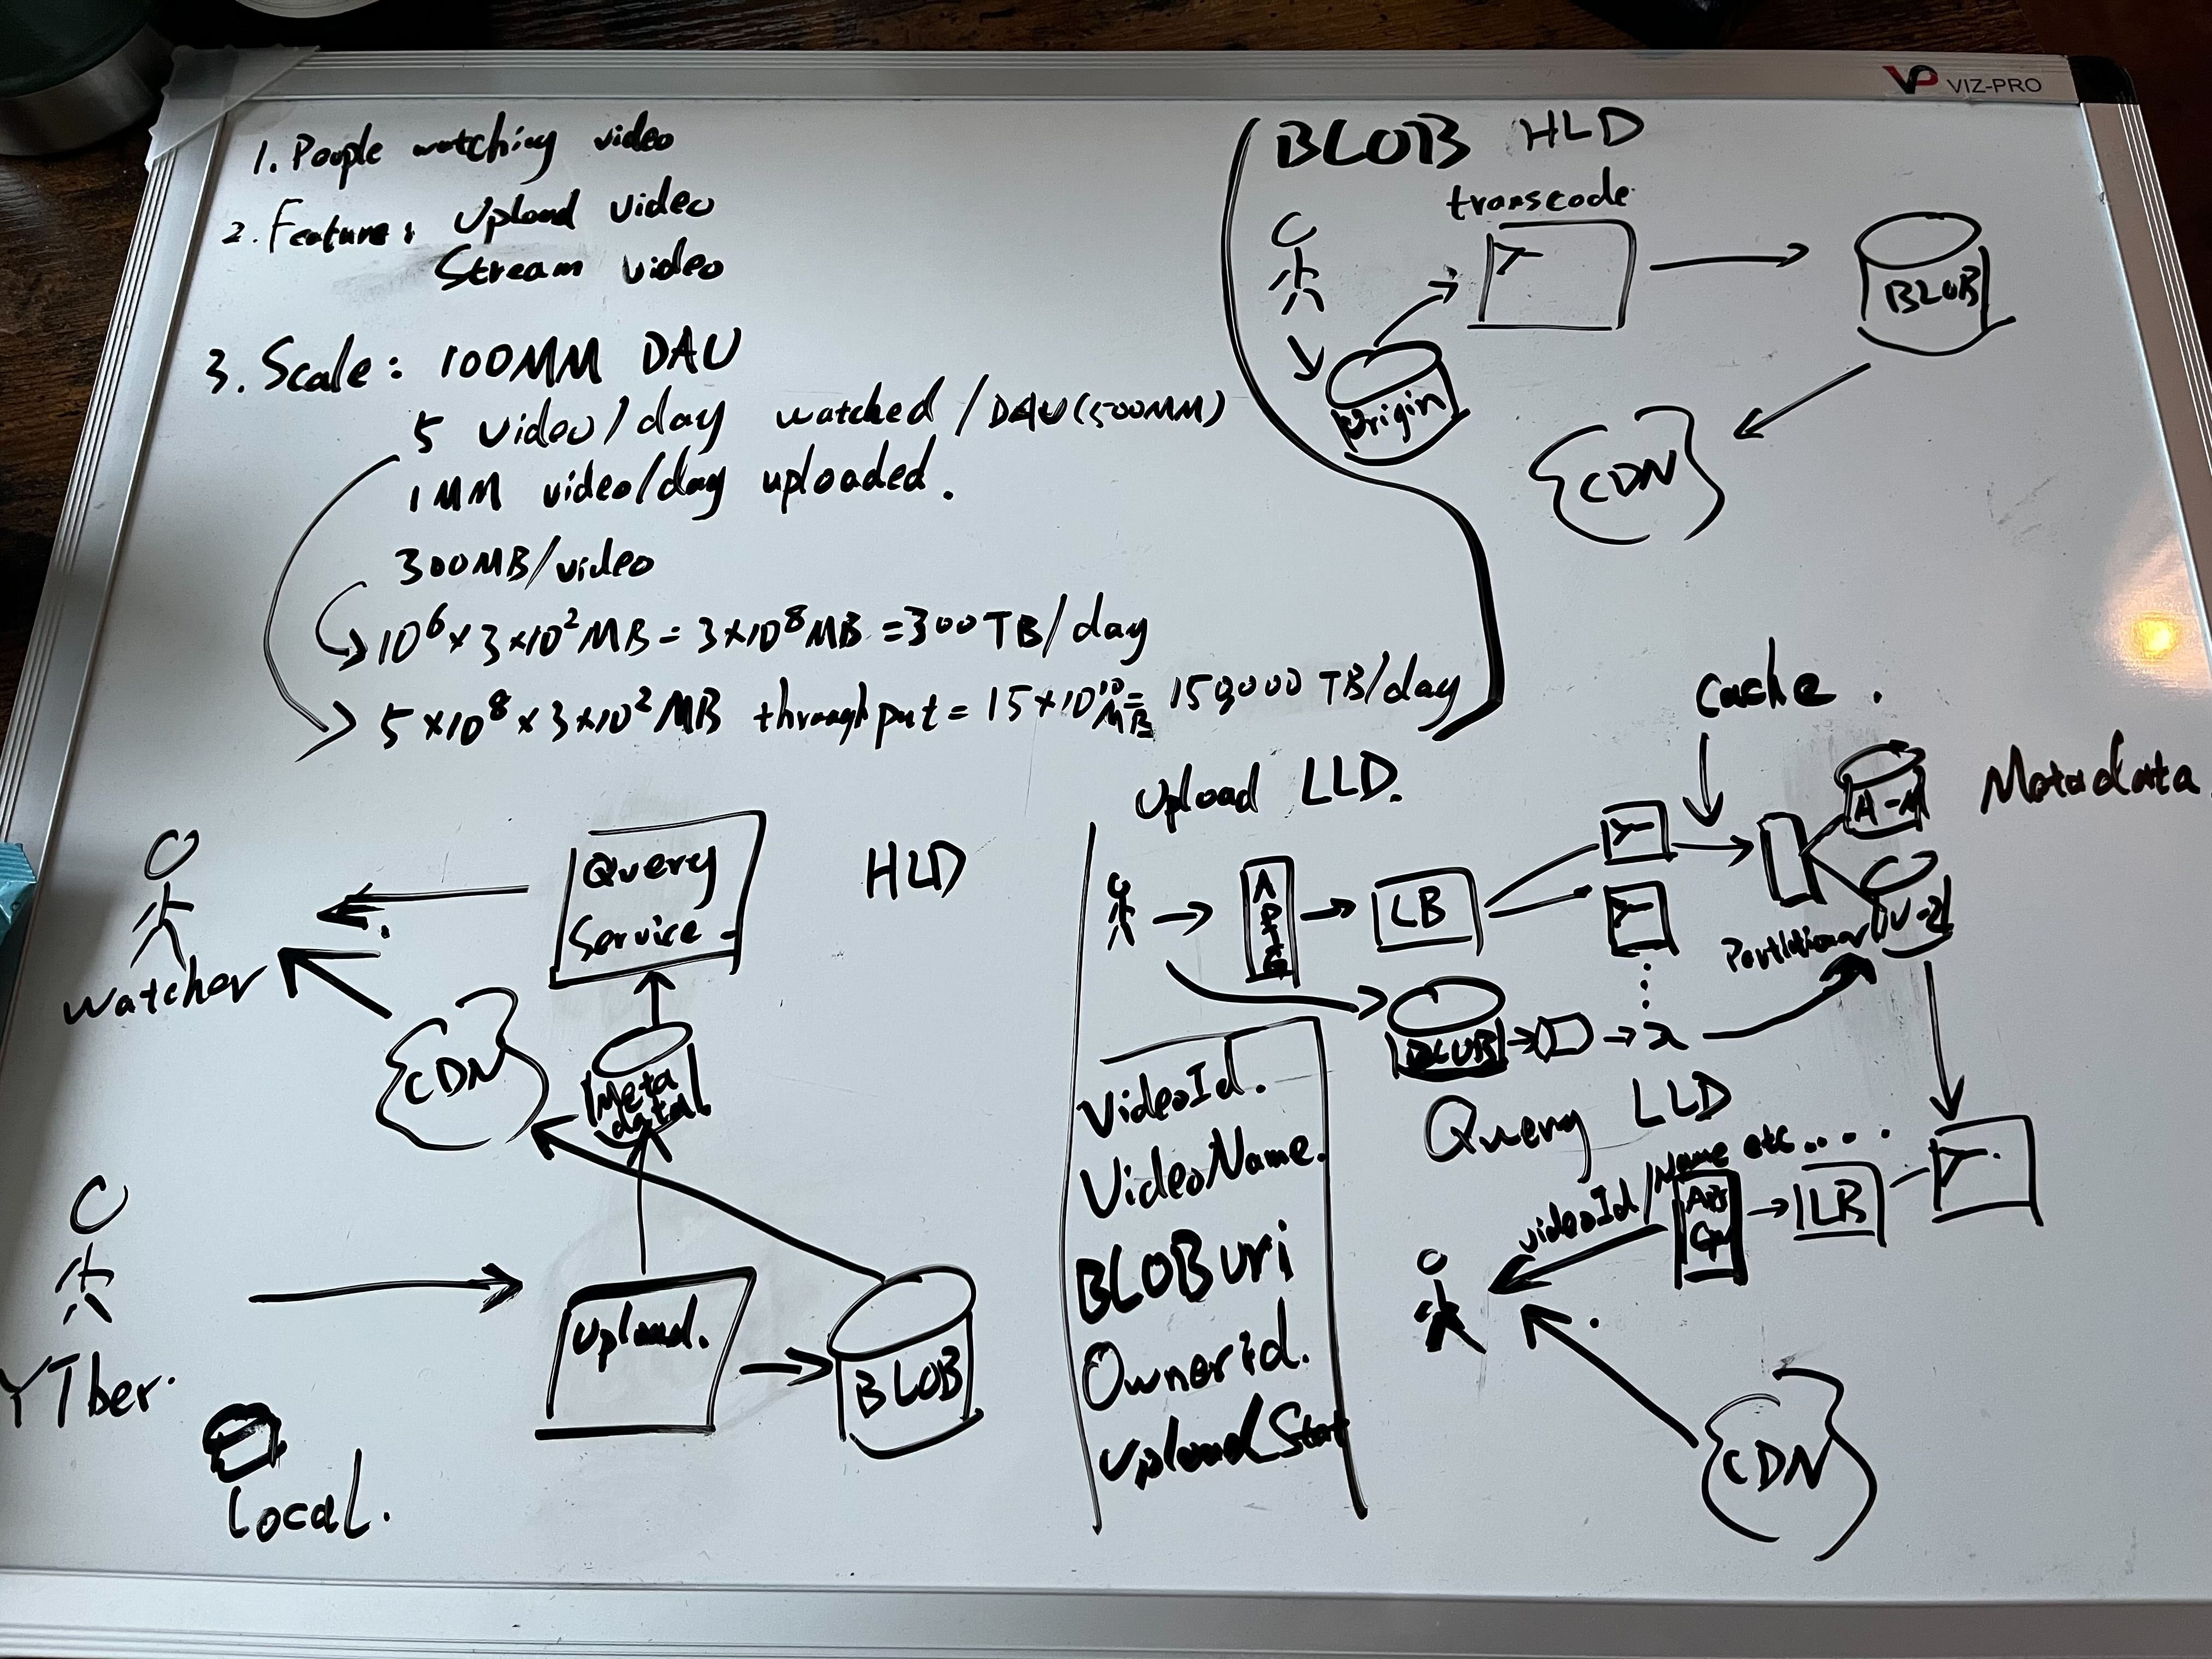 VP VIZ-PRO
1. People watching video
2. Feature: Upload video
Stream video
3. Scale: 100MM DAU
5 video/day watched/DAU(500MM)
1MM video/day uploaded.
300MB/video
10⁶×3×10²MB=3×10⁸MB=300TB/day
5×10⁸×3×10²MB throughput=15×10¹⁰MB=150,000 TB/day
BLOB HLD
transcode
Origin
BLOB
CDN
HLD
Query
Service
Watcher
CDN
Meta
data
YTber.
Upload.
BLOB
Local.
Upload LLD.
Cache.
Metadata
A-M
APIG
LB
Partitioner
BLOB
λ
VideoId.
VideoName.
BLOBuri
Ownerid.
Upload Stat
Query LLD
videoId/Name etc.....
LB
CDN